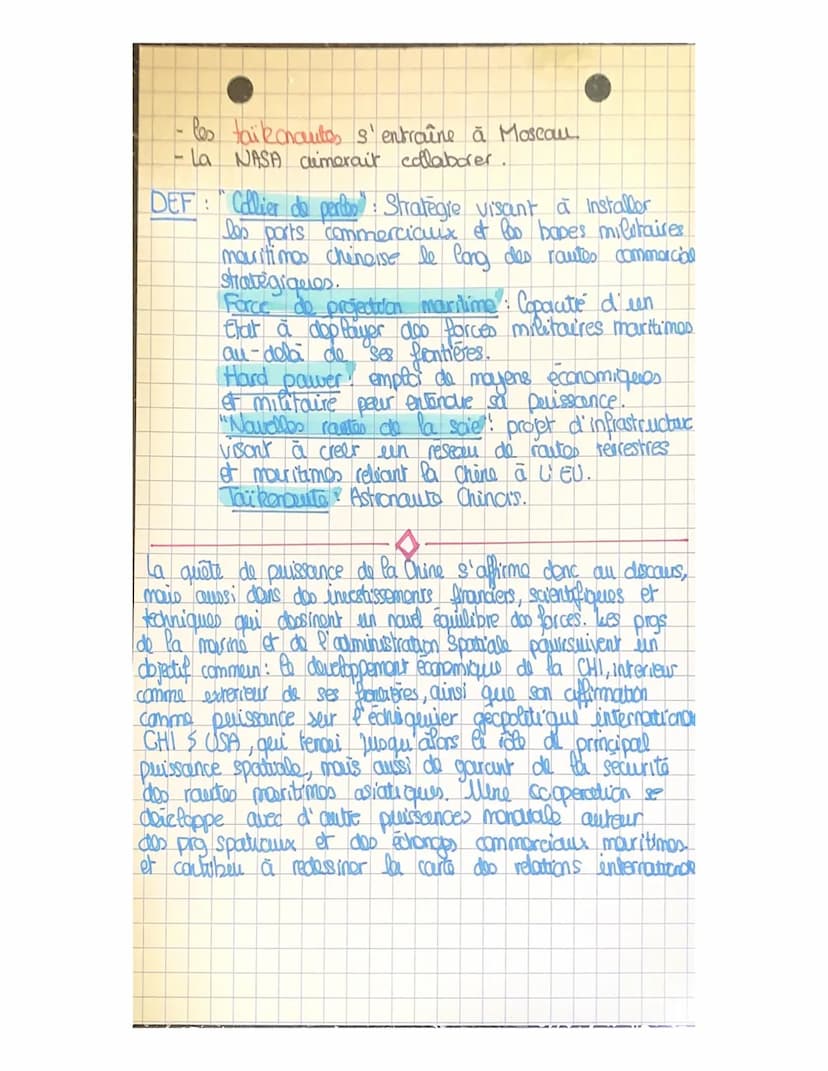 - les taïkonautes s'entraîne à Moscou
- La NASA aimerait collaborer.
DEF : "Collier de perles" : Stratégie visant à installer
les ports commerciaux et les bases militaires
maritimes chinoise le long des routes commercial
stratégiques.
Force de projection maritime : Capacité d'un
État à déployer des forces militaires maritimes
au-delà de ses frontières.
Hard power : emploi de moyens économiques
et militaire pour entendre sa puissance.
"Nouvelles routes de la soie" : projet d'infrastructure
visant à creer un réseau de routes terrestres
et maritimes reliant la Chine à L'EU.
Taïkonaute : Astronaute Chinois.
La quête de puissance de la Chine s'affirme donc au discours,
mais aussi dans des investissements financiers, scientifiques et
techniques qui dessinent un nouvel équilibre des forces. Les prgs
de la marine et de l'administration spatiale poursuivent un
objectif commun : le developpement économique de la CHI, interieur
comme exterieur de ses frontières, ainsi que son affirmation
comme puissance sur l'échiquier géopolitique internationa
CHI $ USA, qui tenai jusqu'alors le rôle de principal
puissance spatiale, mais aussi de garant de la sécurité
des routes maritimes asiatiques. Une coopération se
développe avec d'autre puissances mondiale autour
des prg spatiaux et des échanges commerciaux maritimes
et contribeu à redessiner la carte des relations internationa